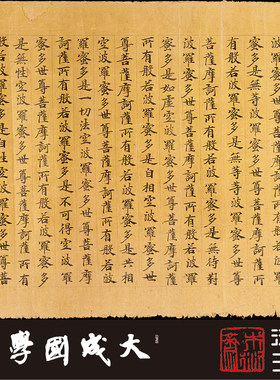 有般若波羅蜜多是無等等波羅蜜多世尊
菩薩摩訶薩所有般若波羅蜜多是無待對
波羅蜜多世尊菩薩摩訶薩所有般若波羅
蜜多是如虛空波羅蜜多世尊菩薩摩訶薩
所有般若波羅蜜多是自相空波羅蜜多世
尊菩薩摩訶薩所有般若波羅蜜多是共相
空波羅蜜多世尊菩薩摩訶薩所有般若波
羅蜜多是一切法空波羅蜜多世尊菩薩摩
訶薩所有般若波羅蜜多是不可得空波羅
蜜多世尊菩薩摩訶薩所有般若波羅蜜多
是無性空波羅蜜多世尊菩薩摩訶薩所有
般若波羅蜜多是自性空波羅蜜多世尊菩
大成國學